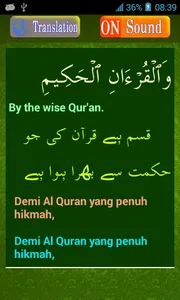 08:39
Translation
ON Sound
وَٱلْقُرْءَانِ ٱلْحَكِيمِ
By the wise Qur'an.
قسم ہے قرآن کی جو
حکمت سے بھرا ہوا ہے
Demi Al Quran yang penuh
hikmah,
Demi Al Quran yang penuh
hikmah,